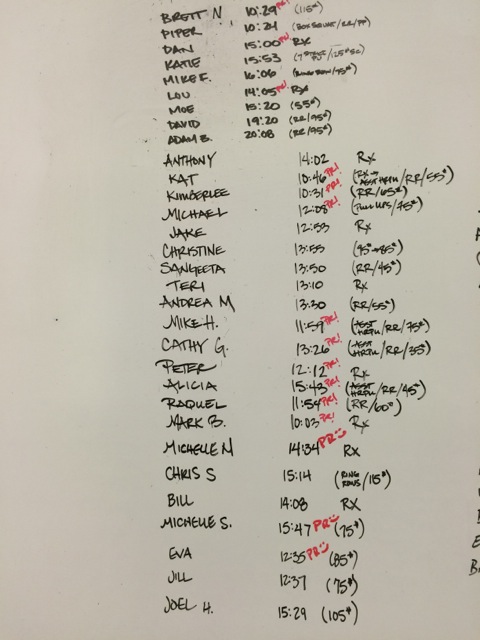 BRETT N 10:29 PR! (115#)
PIPER 10:24 (BOX SQUAT/RR/PP)
DAN 15:00 PR! RX
KATIE 15:53
MIKE F. 16:06 (RING ROW/95#)
LOU 14:05 PR! RX
MOE 15:20 (55#)
DAVID 19:20 (RR/95#)
ADAM B. 20:08 (RR/95#)
ANTHONY 14:02 Rx
KAT 10:46 PR! (RX → ASST HRPU/RR/55#)
KIMBERLEE 10:31 PR! (RR/65#)
MICHAEL 12:08 PR! (PULL UPS/75#)
JAKE 12:53 Rx
CHRISTINE 13:55 (95→85#)
SANGEETA 13:50 (RR/45#)
TERI 13:10 Rx
ANDREA M 13:30 (RR/55#)
MIKE H. 11:59 PR! (ASST HRPU/RR/75#)
CATHY G. 13:26 PR! (ASST HRPU/RR/35#)
PETER 12:12 PR! Rx
ALICIA 15:43 PR! (ASST HRPU/RR/45#)
RAQUEL 11:54 PR! (RR/60#)
MARK B. 10:03 PR! Rx
MICHELLE N 14:34 PR Rx
CHRIS S 15:14 (RING ROWS/15#)
BILL 14:08 RX
MICHELLE S. 15:47 PR (75#)
EVA 12:35 PR (85#)
JILL 12:37 (75#)
JOEL H. 15:29 (105#)